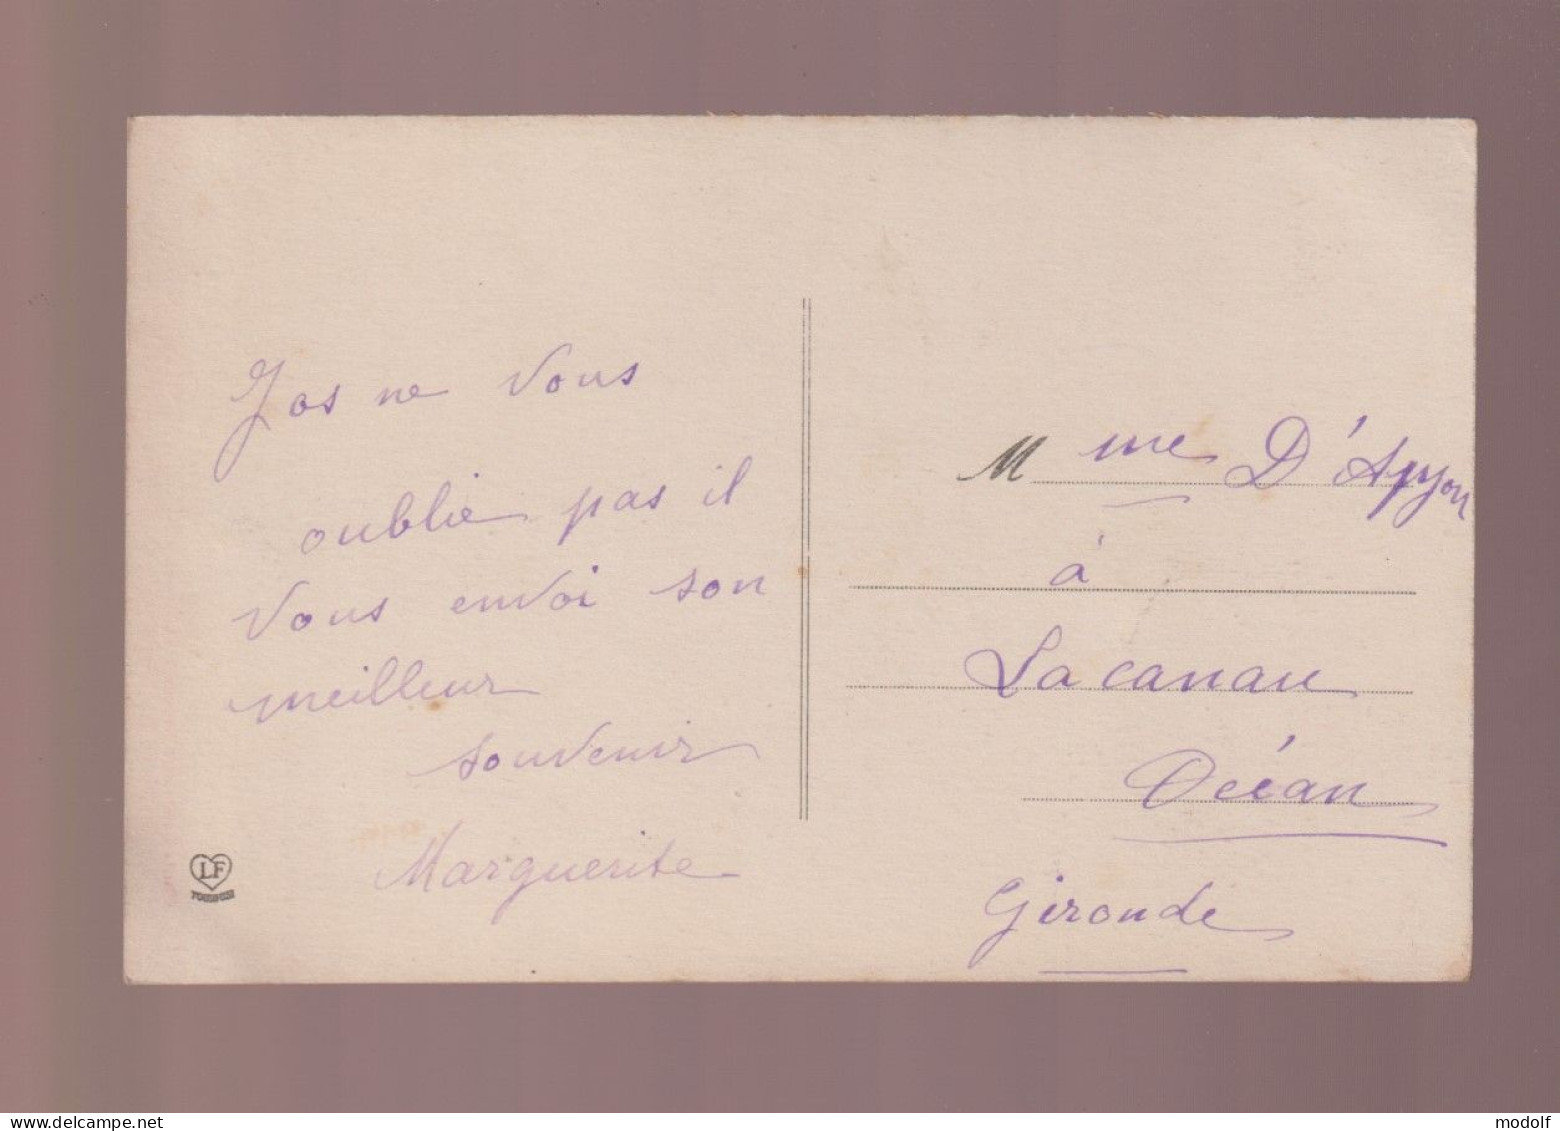 Jos ne Vous
oublie pas il
Vous envoi son
meilleur
souvenir
Marguerite
LF
Mme D'Apyon
à
Lacanau
Océan
Gironde
www.delcampe.net
modolf